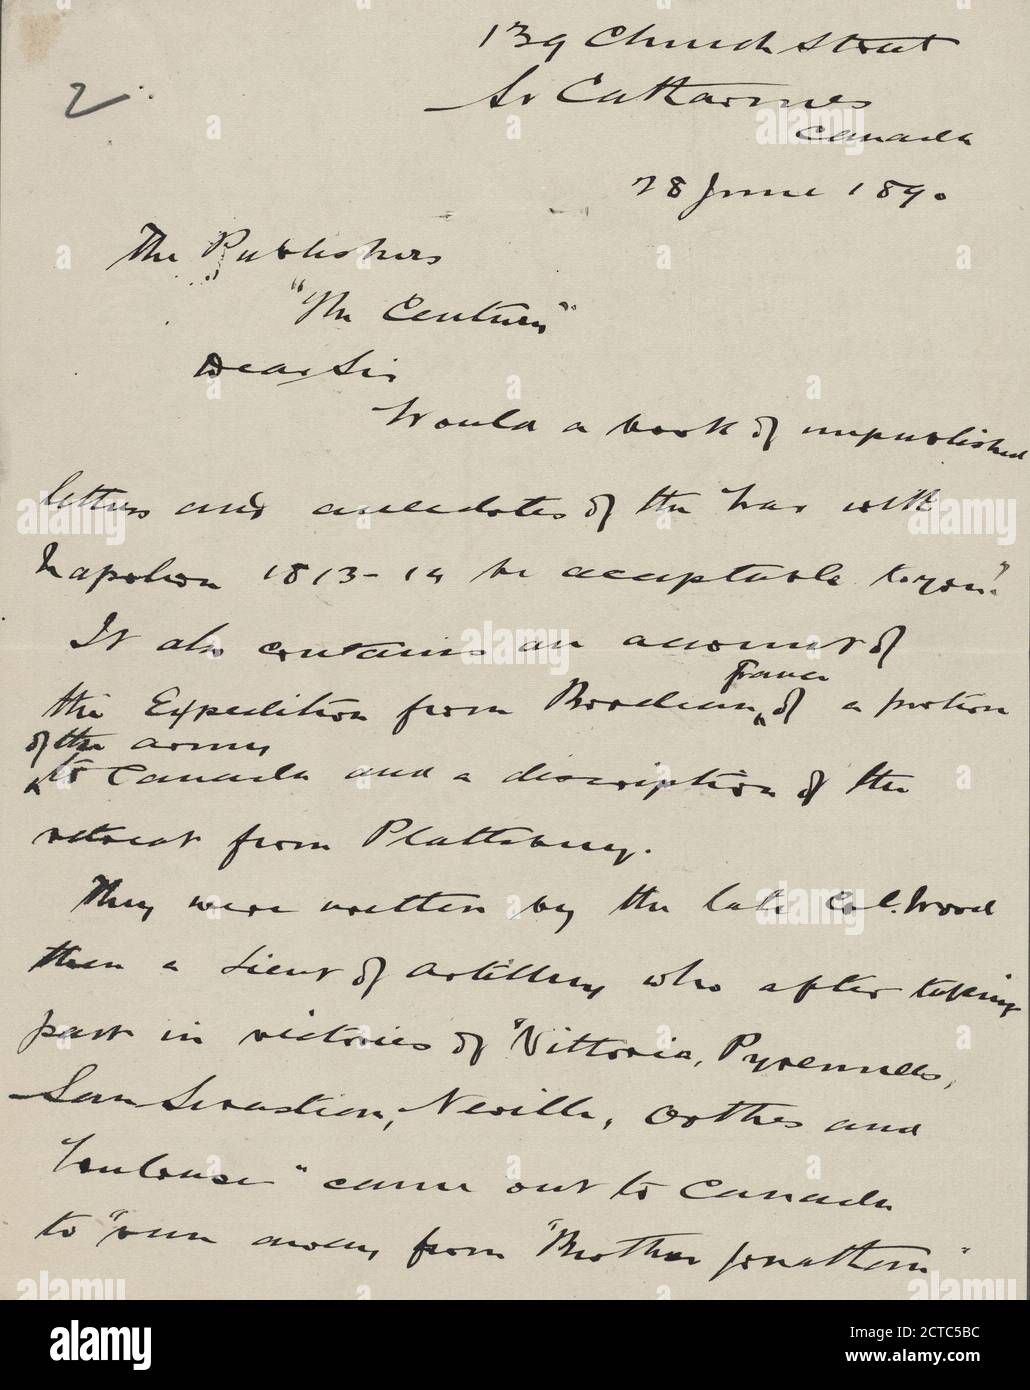 139 Church Street
St Catharines
Canada
28 June 1890
2
The Publishers
"The Century"
Dear Sir
Would a book of unpublished
letters and anecdotes of the War with
Napoleon 1813-14 be acceptable to you?
It also contains an account of
the Expedition from Bordeaux, France of a portion
of the army
to Canada and a discription of the
retreat from Plattsburg.
They were written by the late Col. Wood
then a Lieut of Artillery who after taking
part in victories of "Vittoria, Pyrennees,
San Sevastian, Neville, Orthes and
Toulouse" came out to Canada
to "run away from "Brother Jonathan"
alamy
Image ID: 2CTC5BC
www.alamy.com